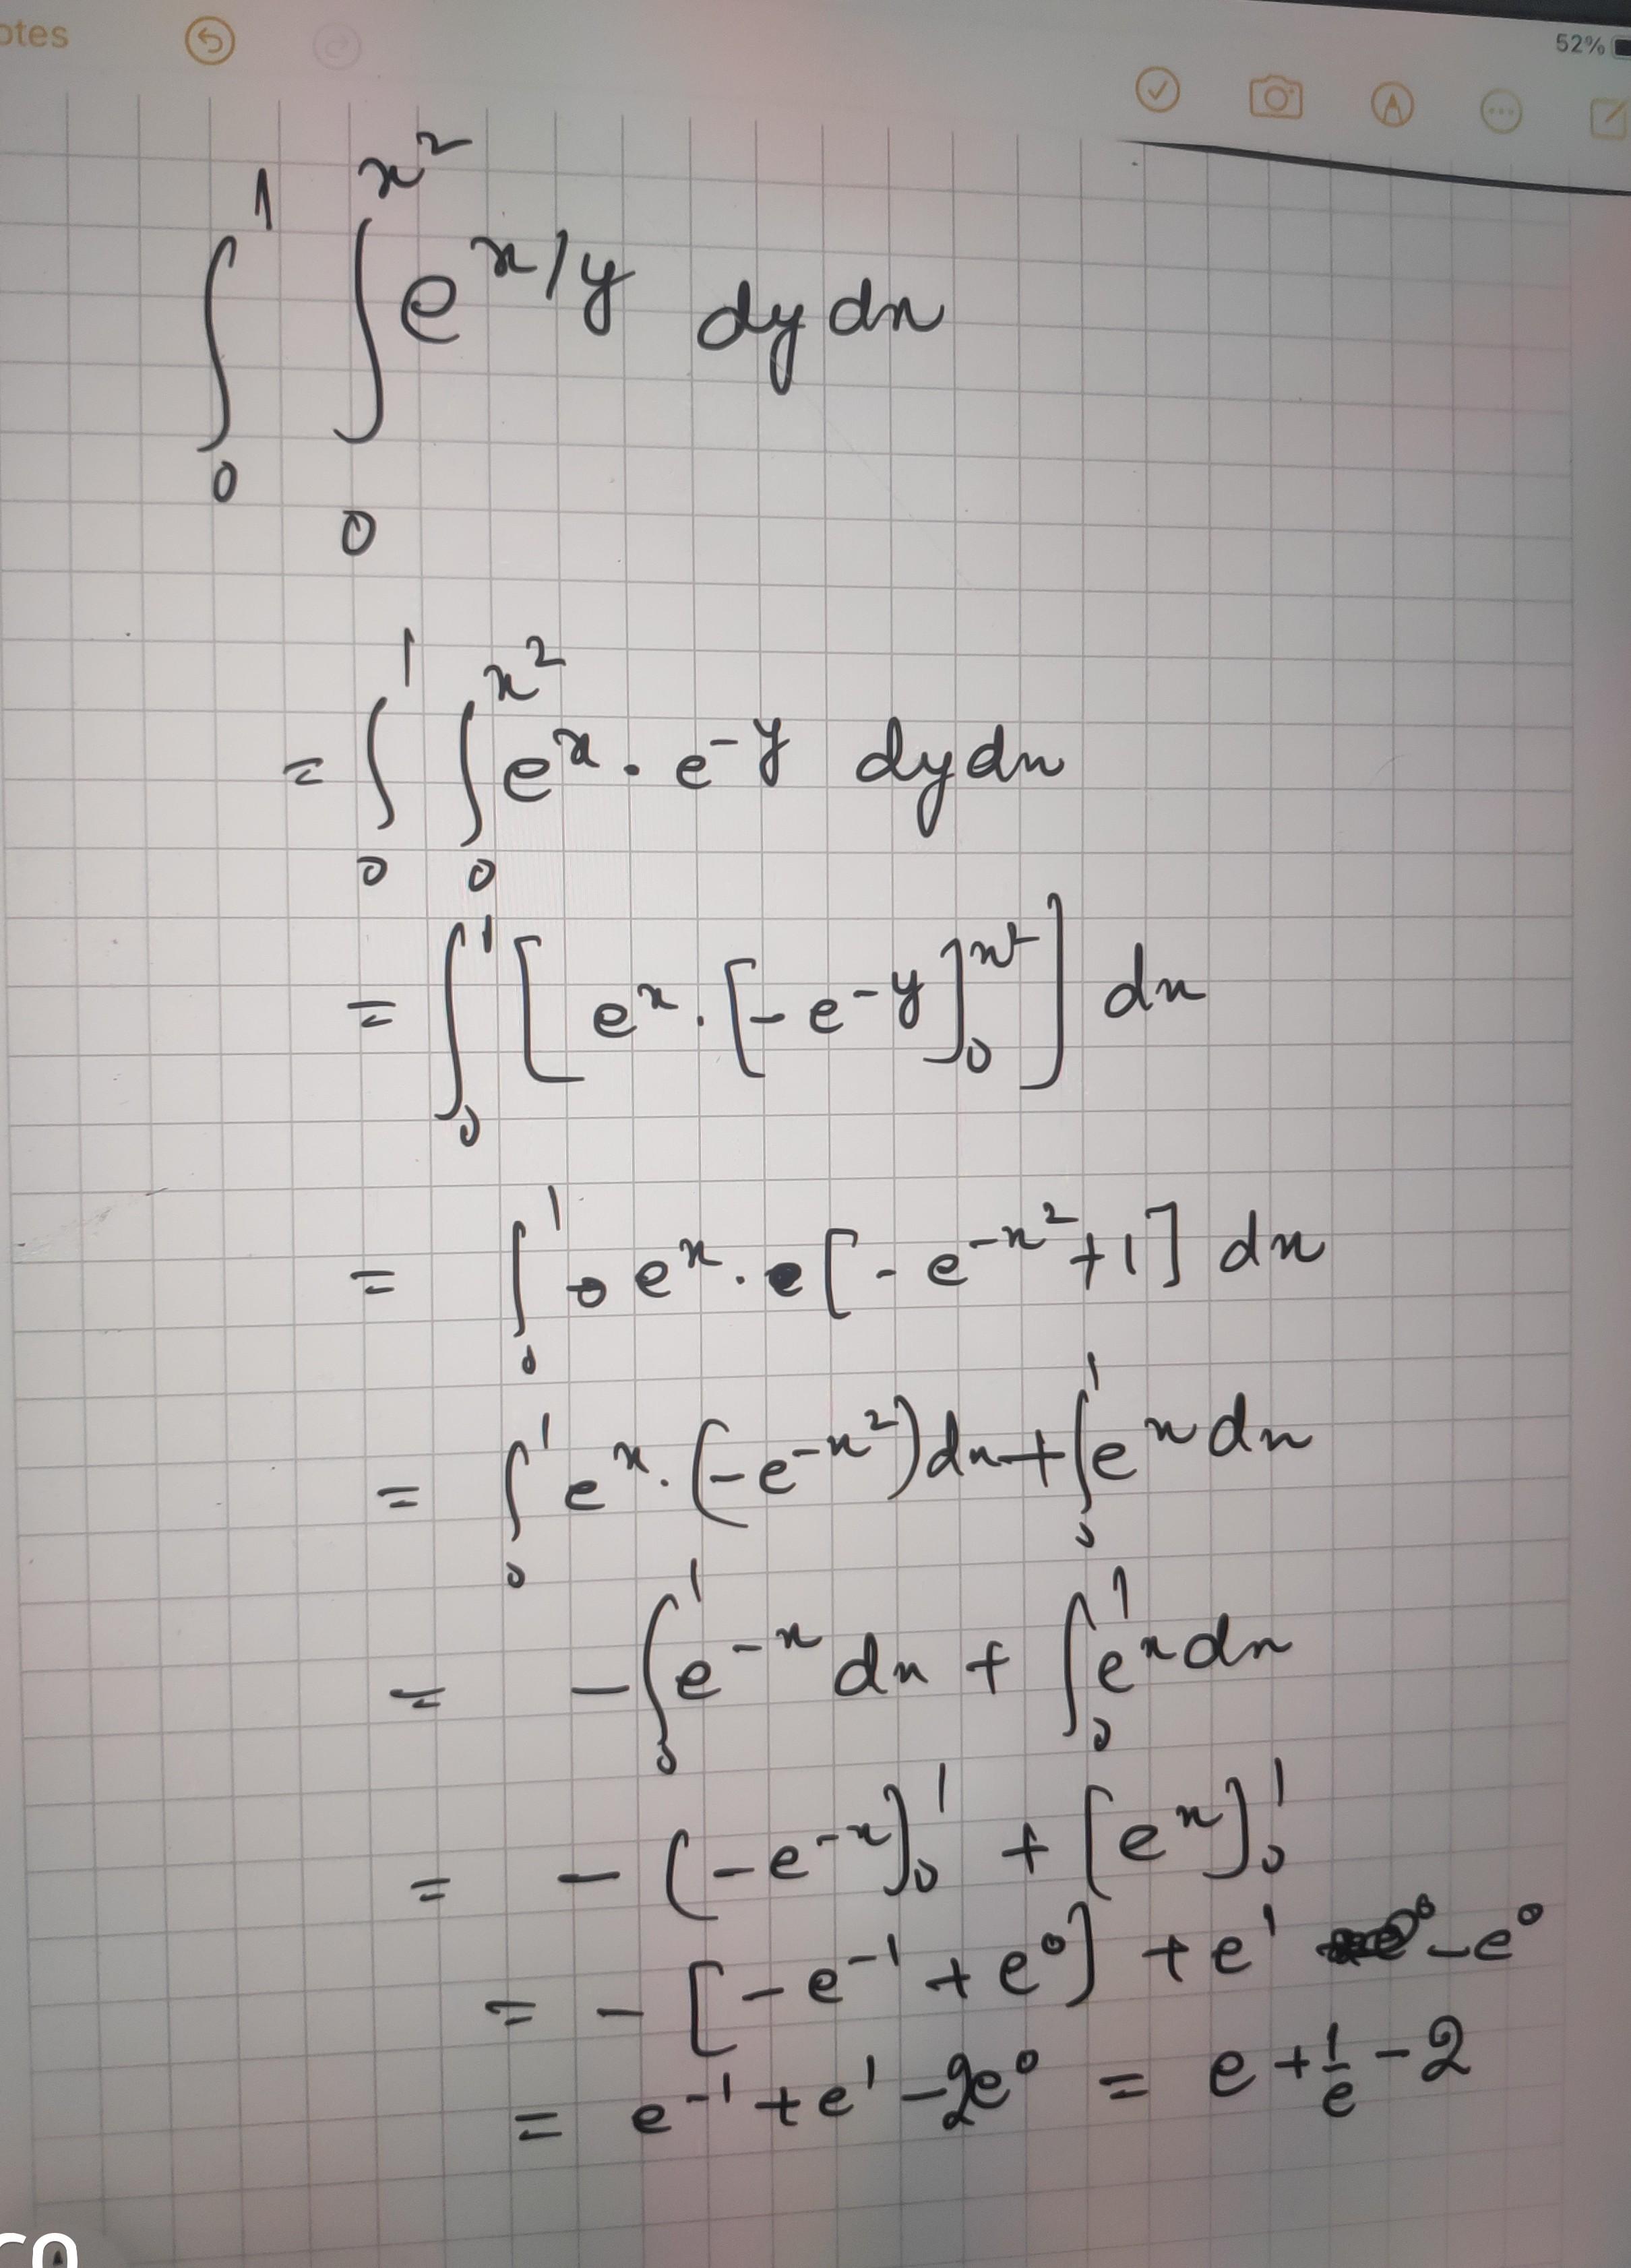 otes
52%
∫₀¹ ∫₀^{x²} e^{x/y} dy dx
= ∫₀¹ ∫₀^{x²} e^x · e^{-y} dy dx
= ∫₀¹ [ e^x · [-e^{-y}]₀^{x²} ] dx
= ∫₀¹ e^x · [-e^{-x²} + 1] dx
= ∫₀¹ e^x · (-e^{-x²}) dx + ∫₀¹ e^x dx
= -∫₀¹ e^{-x} dx + ∫₀¹ e^x dx
= -(-e^{-x}]₀¹ + [e^x]₀¹
= -[-e^{-1} + e^0] + e^1 - e^0
= e^{-1} + e^1 - 2e^0 = e + 1/e - 2